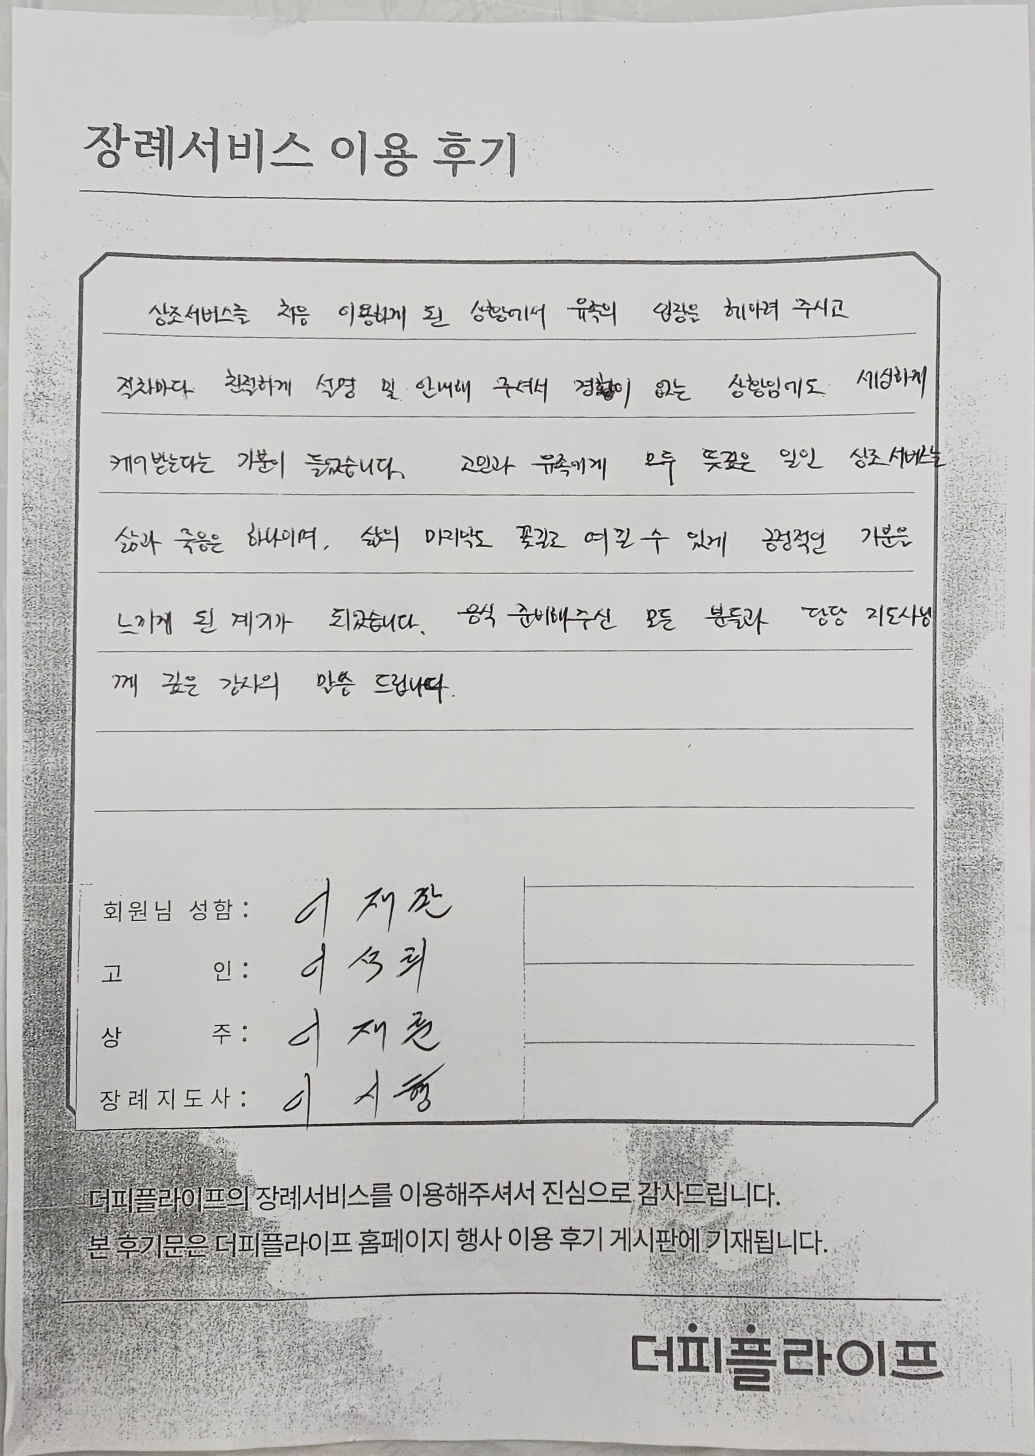 장례서비스 이용 후기
상조서비스를 처음 이용하게 된 상황에서 유족의 입장을 헤아려 주시고
절차마다 친절하게 설명 및 안내해 주셔서 경황이 없는 상황임에도 세심하게
케어받는다는 기분이 들었습니다. 고인과 유족에게 모두 뜻깊은 일인 상조서비스는
삶과 죽음은 하나이며, 삶의 마지막도 꽃길로 여길 수 있게 긍정적인 기분을
느끼게 된 계기가 되었습니다. 음식 준비해주신 모든 분들과 담당 지도사님
께 깊은 감사의 말씀 드립니다.
회원님 성함: 이재
고 인: 이석
상 주: 이재
장례지도사: 이시형
더피플라이프의 장례서비스를 이용해주셔서 진심으로 감사드립니다.
본 후기문은 더피플라이프 홈페이지 행사 이용 후기 게시판에 기재됩니다.
더피플라이프